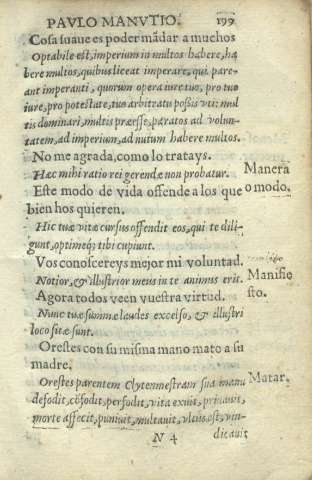 PAVLO MANVTIO. 199
Cosa suaue es poder mãdar a muchos
Optabile est, imperium in multos habere, ha
bere multos, quibus liceat imperare, qui pare-
ant imperanti, quorum opera iure tuo, pro tuo
iure, pro potestate, tuo arbitratu possis vti: mul
tis dominari, multis præesse, paratos ad volun-
tatem, ad imperium, ad nutum habere multos.
No me agrada, como lo tratays.
Hæc mihi ratio rei gerendæ non probatur.
Manera
o modo.
Este modo de vida offende a los que
bien hos quieren.
Hic tuæ vitæ cursus offendit eos, qui te dili-
gunt, optimeq; tibi cupiunt.
Vos conoscereys mejor mi voluntad.
Notior, & illustrior meus in te animus erit.
Manifie
sto.
Agora todos veen vuestra virtud.
Nunc tuæ summæ laudes excelso, & illustri
loco sitæ sunt.
Orestes con su misma mano mato a su
madre.
Matar.
Orestes parentem Clytemnestram sua manu
defodit, cõfodit, perfodit, vita exuit, priuauit,
morte affecit, puniuit, multauit, vltus est, vin-
N 4 dicauit